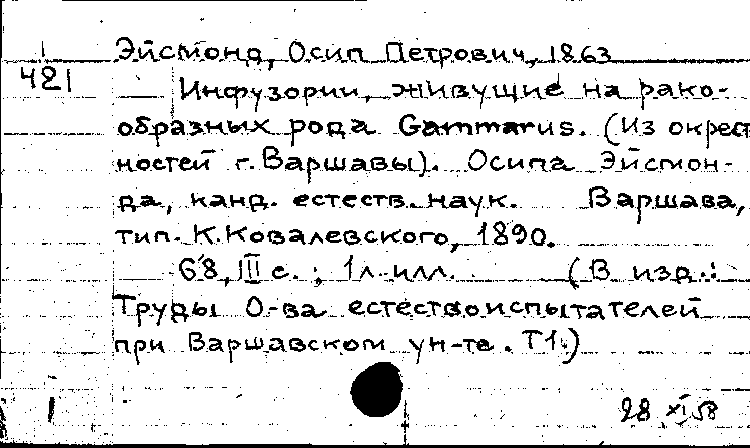 Эйсмонд, Осип Петрович, 1863
421
Инфузории, живущие на рако-
образных рода Gammarus. (Из окрест
ностей г. Варшавы). Осипа Эйсмон-
да, канд. естеств. наук. Варшава,
тип. К. Ковалевского, 1890.
68, III с.; 1 л. илл. (В изд.:
Труды О-ва естествоиспытателей
при Варшавском ун-те. Т1.)
28 XI 58